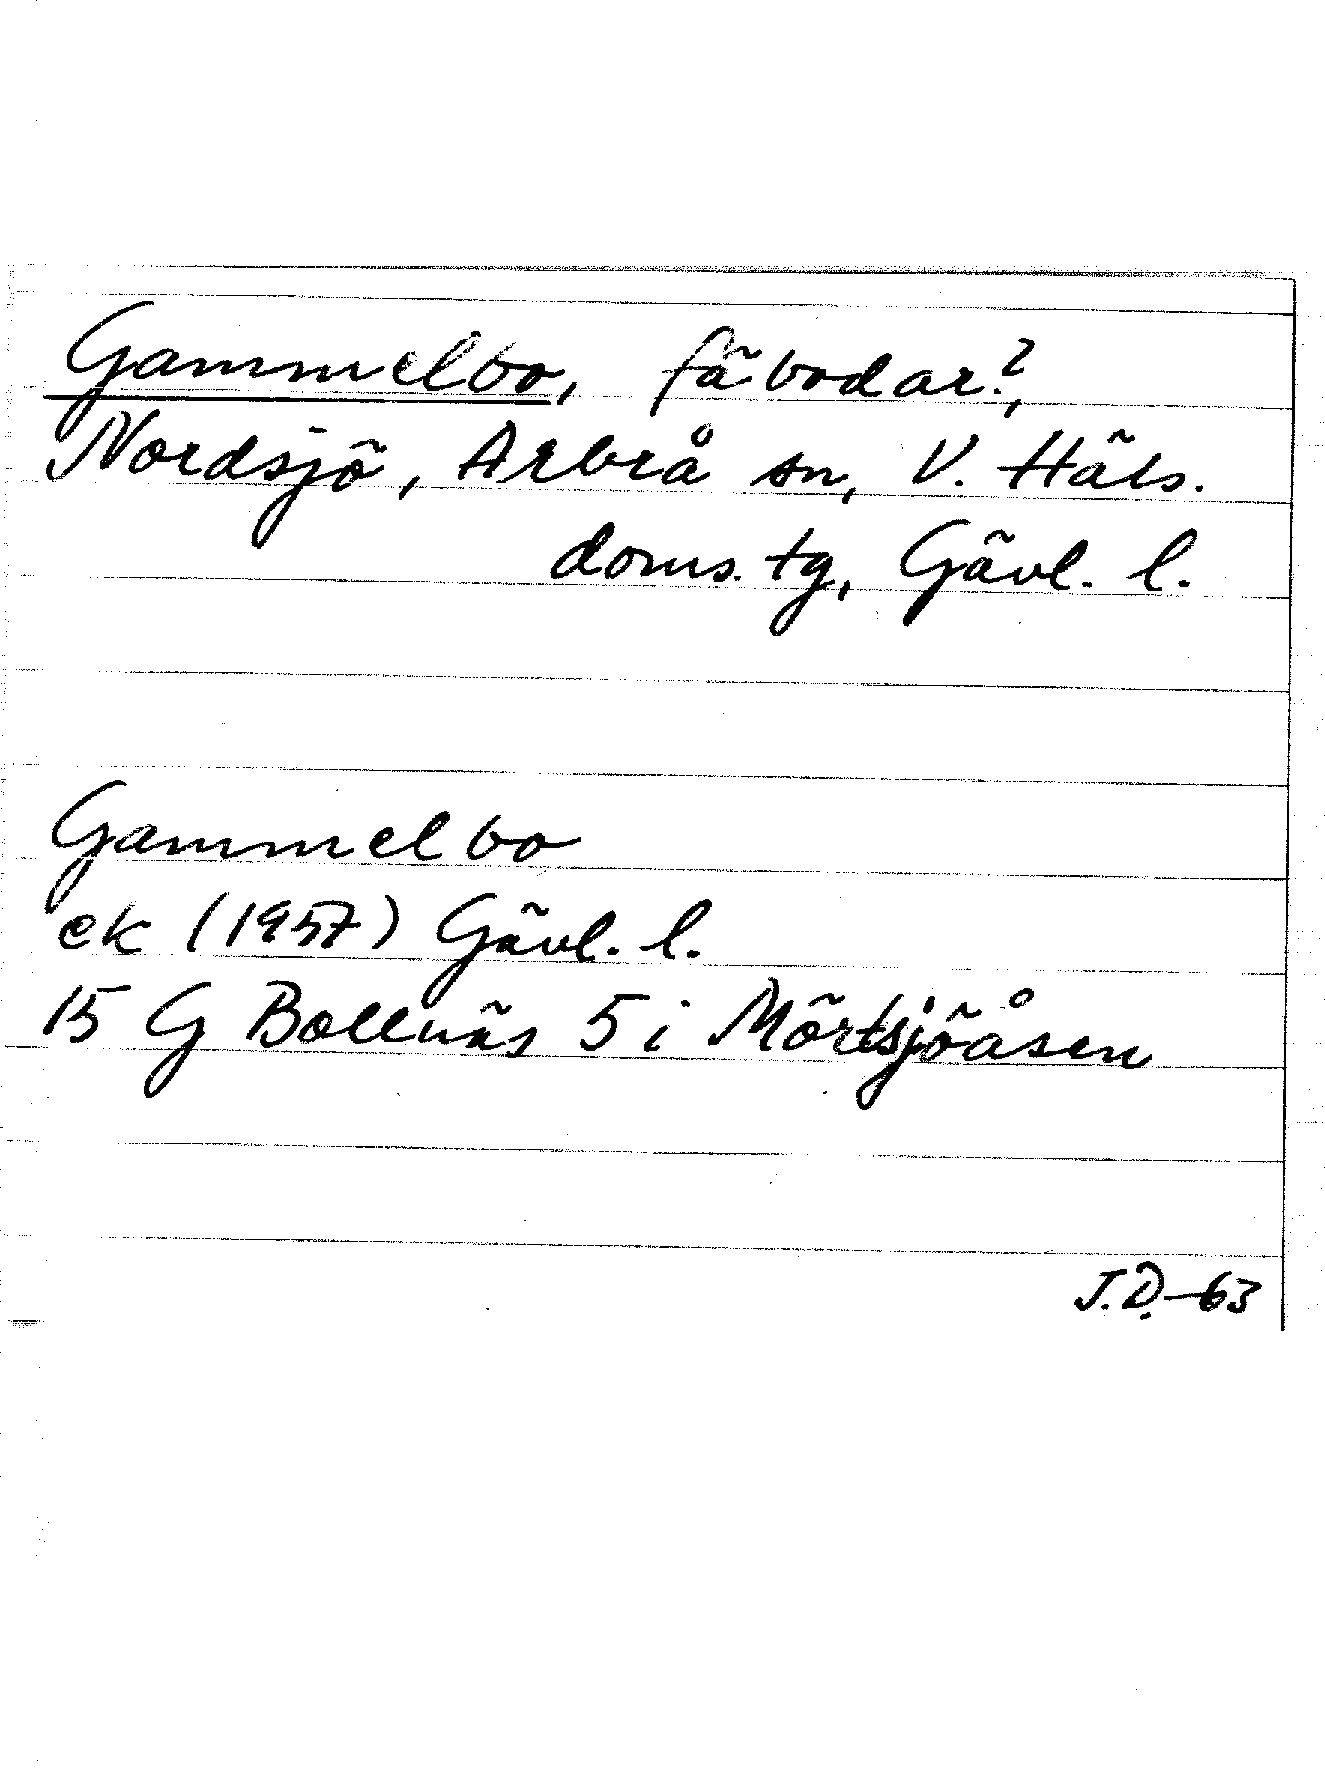 Gammelbo, fäbodar?,
Nordsjö, Arbrå sn, V. Häls.
doms. tg, Gävl. l.
Gammelbo
ek (1957) Gävl. l.
15 G Bollnäs 5 i Mörtsjöåsen
J.D.-63